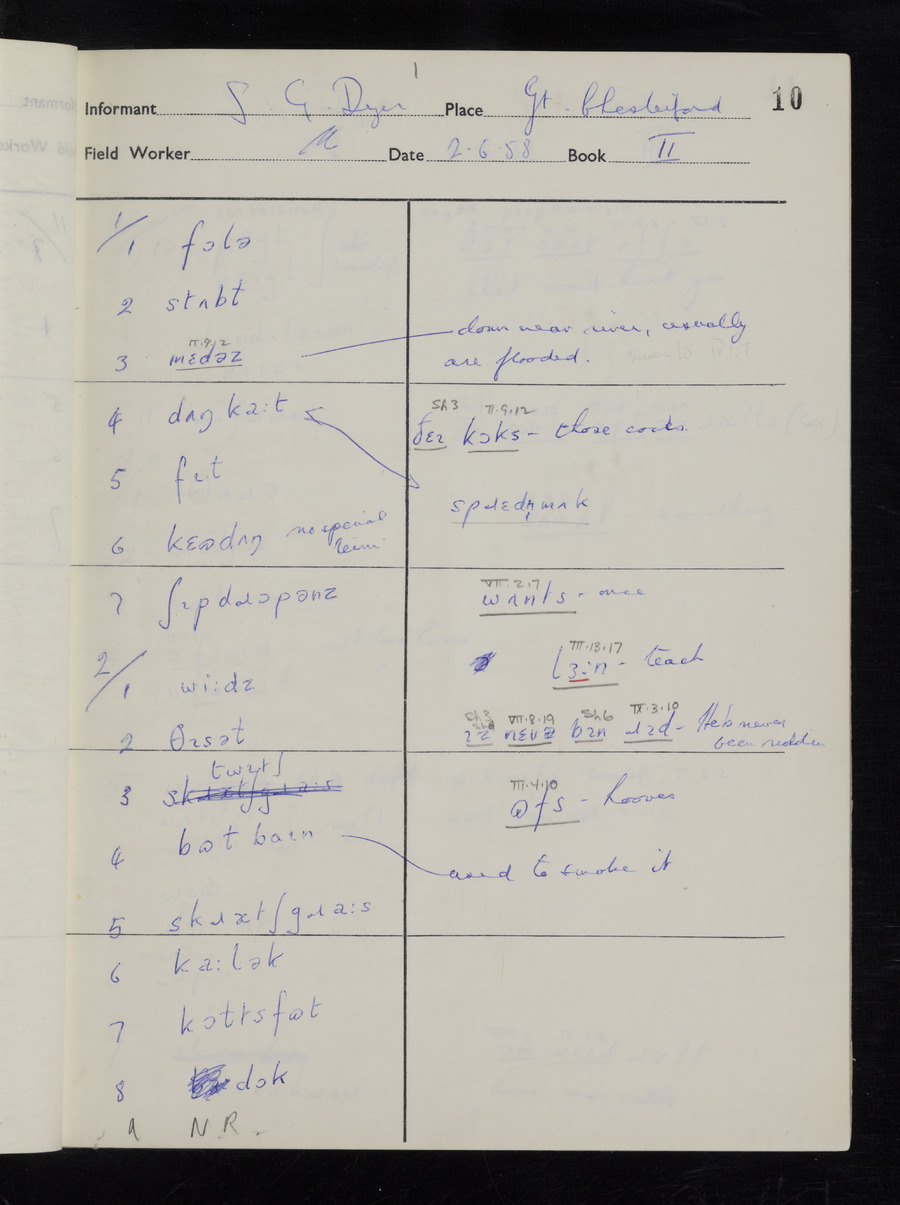 Informant S. G. Dyer Place Gt. Chesterford 10
Field Worker Date 2.6.58 Book II
1/
1 fɔlə
2 stʌbt
3 mɛdəz II.9.2
down near river, usually
are flooded.
4 dʌŋ ka:t
Sh3 II.9.12
ðɛɪ kɔks - those cocks
5 fɪt
spɹɛdn̩ mʌk
6 kɛədʌŋ no special
term
7 ʃɪp dɹɔpənz
VII.2.7
wʌnts - once
2/
1 wi:dz
III.13.17
lɜ:n - teach
2 θɪsət
Sh3 VII.8.19 Sh6 IX.3.10
ɪz nɛvə bɪn ɹɪd - Heb never
been ridden
twɪtʃ
3 skɹətʃgɹa:s
III.4.10
ɷfs - hooves
4 bɷt baɪn
used to smoke it
5 skɹætʃgɹa:s
6 ka:lək
7 kɔltsfɷt
8 dɔk
9 N.R.